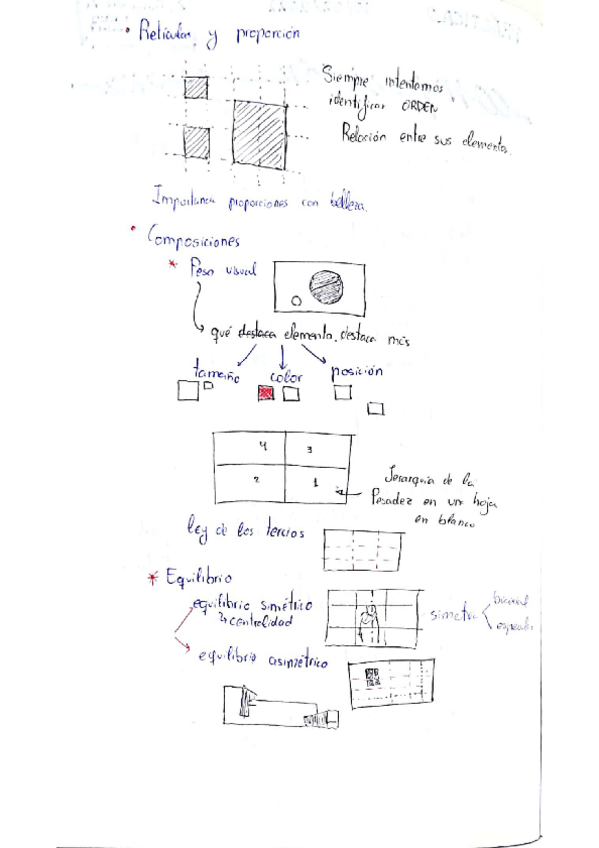 Retículas y proporción
Siempre intentamos
identificar ORDEN
Relación entre sus elementos.
Importancia proporciones con belleza.
Composiciones
Peso visual
qué destaca elemento, destaca más
tamaño color posición
4 3
2 1
Jerarquía de la
Pesadez en un hoja
en blanco
ley de los tercios
Equilibrio
equilibrio simétrico
centralidad
simetría
equilibrio asimétrico